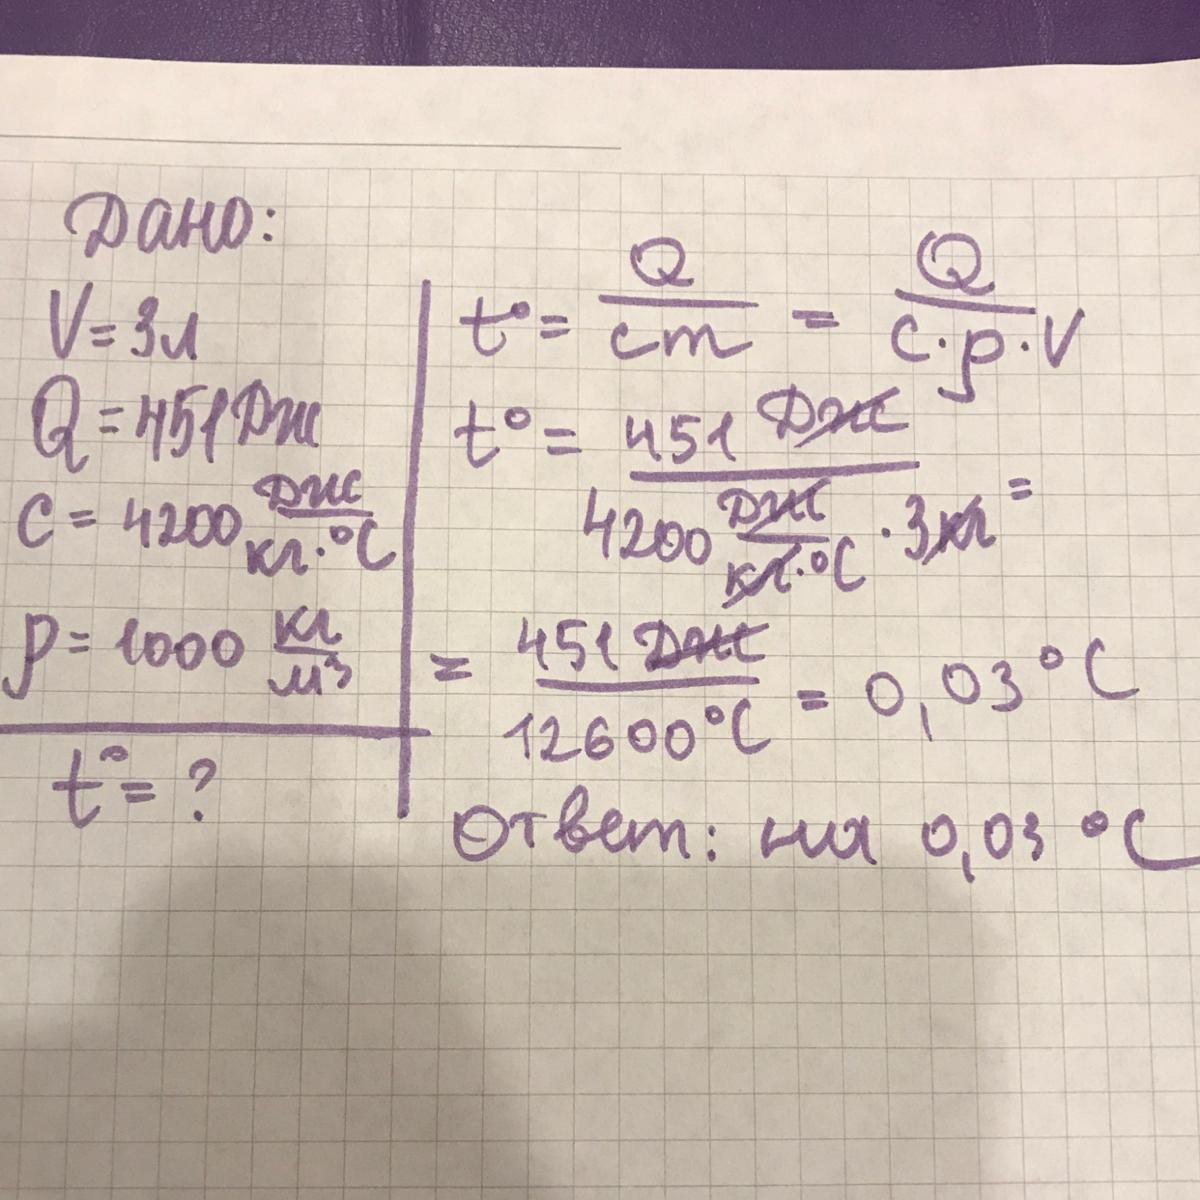 Дано:
V = 3л
Q = 451 Дж
c = 4200 Дж/кг·°C
ρ = 1000 кг/м³
t° = ?
t° = Q/cm = Q/c·ρ·V
t° = 451 Дж/4200 Дж/кг·°C · 3кг =
= 451 Дж/12600°C = 0,03°C
Ответ: на 0,03 °C